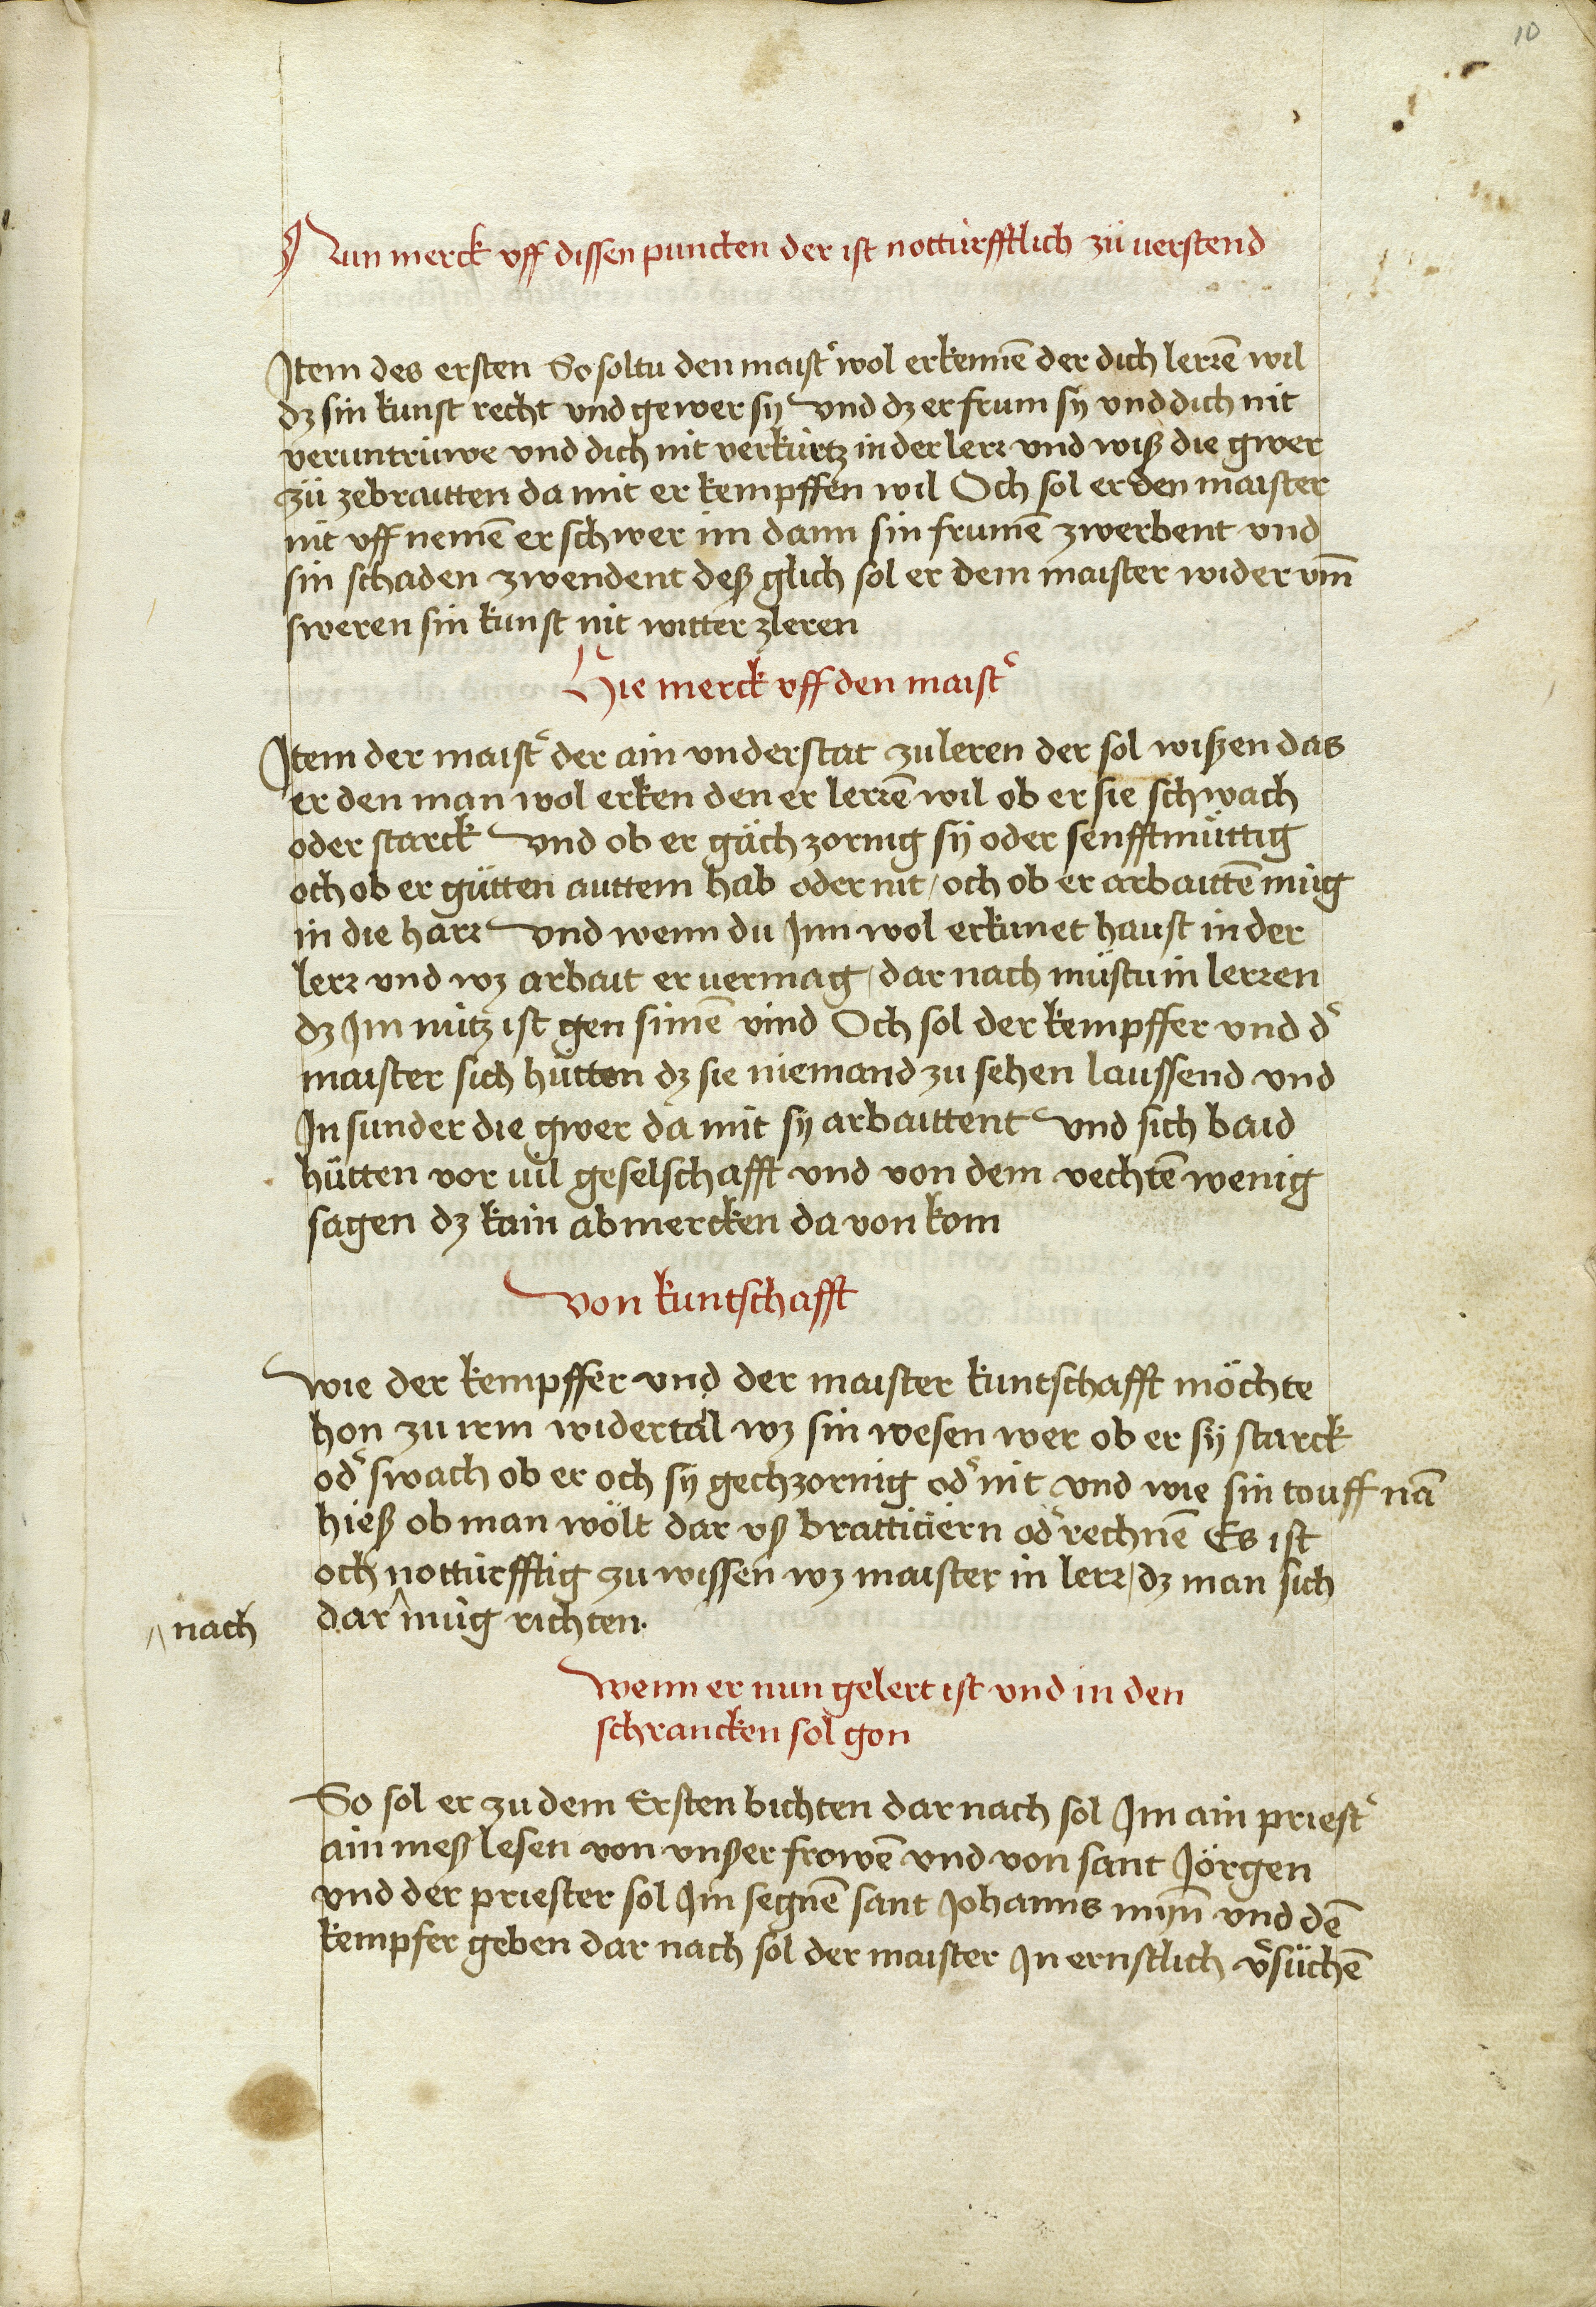 10
Nun merck vff dissen puncten der ist notturfftlich zů uerstend
Item des ersten So soltu den maist᾽ wol erkennē der dich lerrē wil
dz sin kunst recht vnd gewer sy vnd dz er frum sy vnd dich nit
veruntrüwe vnd dich nit verkürtz in der lerr vnd wiß die gwer
zů zebraitten da mit er kempffen wil Och sol er den maister
nit vff nemē er schwer im dann sin frumē zwerbent vnd
sin schaden zwendent deß glich sol er dem maister wider vm̄
sweren sin kunst nit witter zleren
Hie merck vff den maist᾽
Item der maist᾽ der ain vnderstat zu leren der sol wißen das
er den man wol erken den er lerrē wil ob er sie schwach
oder starck vnd ob er gäch zornig sÿ oder senfftmüttig
och ob er gůtten auttem hab oder nit / och ob er arbaittē müg
in die harr vnd wenn du Inn wol erkunet haust in der
lerr vnd wz arbait er vermag / dar nach můstu in lerren
dz Im nütz ist gen sinē vind Och sol der kempffer vnd d᾽
maister sich hütten dz sie niemand zu sehen laussend vnd
In sunder die gwer da mit sÿ arbaittent vnd sich baid
hütten vor uil geselschafft vnd von dem vechtē wenig
sagen dz kain abmercken da von kom
von kuntschafft
wie der kempffer vnd der maister kuntschafft möchte
hon zu irm widertäl wz sin wesen wer ob er sÿ starck
od᾽ swach ob er och sy gechzornig od᾽ nit vnd wie sin touff nā
hieß ob man wölt dar vß bratticiern od᾽ rechnē Es ist
och notturfftig zu wissen wz maister in lerr / dz man sich
dar ^ müg richten.
^ nach
wenn er nun gelert ist vnd in den
schrancken sol gon
So sol er zu dem Ersten bichten dar nach sol Im ain priest᾽
ain meß lesen von vnßer frowē vnd von sant Jörgen
vnd der priester sol Im segnē sant Johanns mÿn̄ vnd dē
kempfer geben dar nach sol der maister In ernstlich v᾽süchē